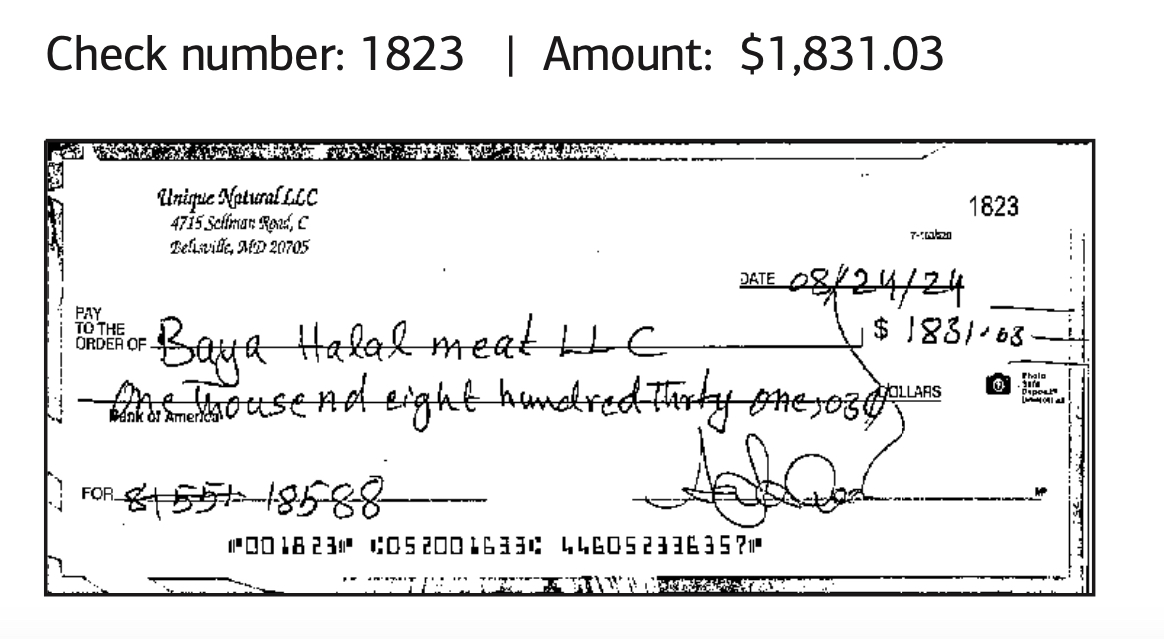 Check number: 1823 | Amount: $1,831.03
Unique Natural LLC
4715 Sellman Road, C
Beltsville, MD 20705
1823
DATE 08/24/24
PAY
TO THE
ORDER OF Baya Halal meat LLC
$ 1831.03
One Thousend eight hundred Thirty one,03
DOLLARS
Photo
Safe
Deposit
Bank of America
FOR 18588
MP
⑈001823⑈ ⑆052001633⑆ 446052336357⑈